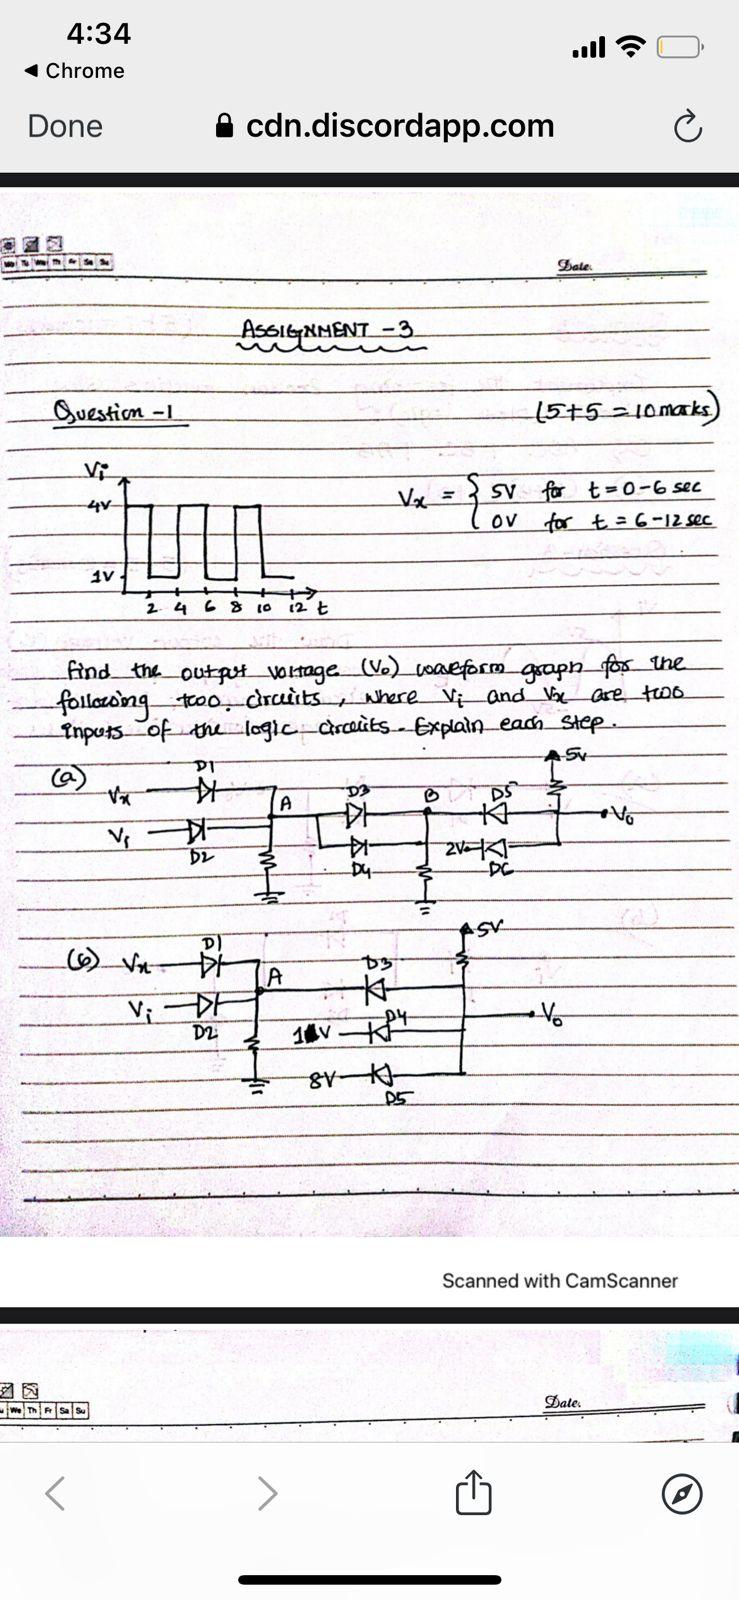 4:34
◀ Chrome
Done cdn.discordapp.com
Mo Tu We Th Fr Sa Su
Date.
ASSIGNMENT -3
Question -1 (5+5 = 10 marks)
Vi
4V
1V
2 4 6 8 10 12 t
Vx = { 5V for t = 0-6 sec
0V for t = 6-12 sec
Find the output voltage (Vo) waveform graph for the
following two circuits, where Vi and Vx are two
inputs of the logic circuits. Explain each step.
(a) Vx D1 A D3 B D5 5V Vo
Vi D2 D4 2V D6
(b) Vx D1 A D3 5V
Vi D2 1V D4 Vo
8V D5
Scanned with CamScanner
We Th Fr Sa Su
Date.